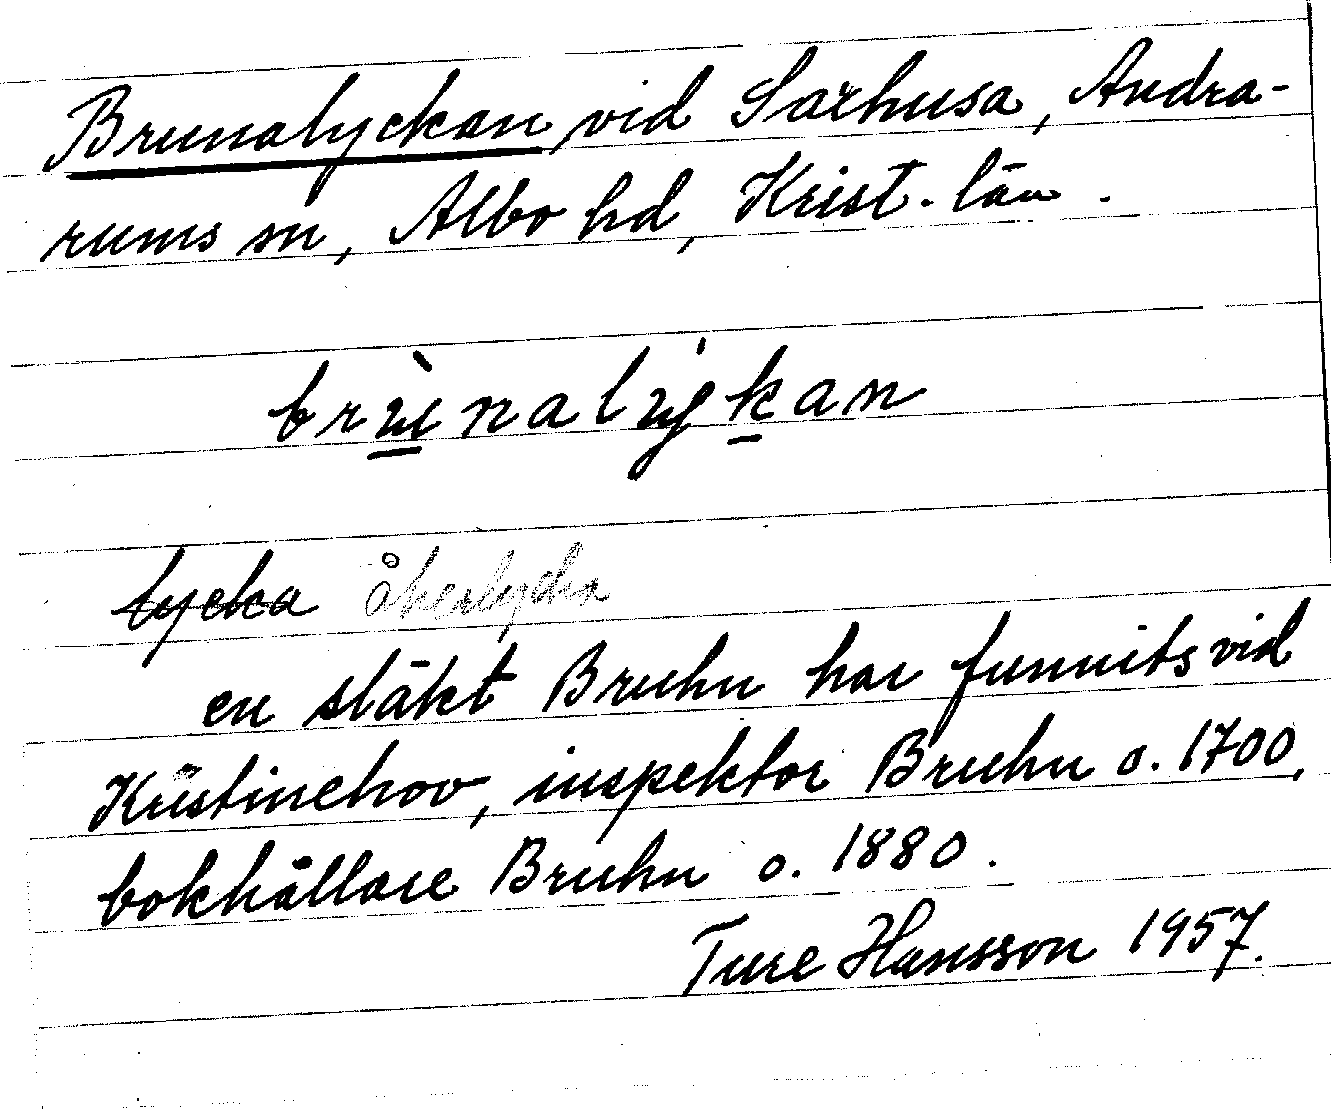 Brunalyckan vid Sarhusa, Andra-
rums sn, Albo hd, Krist. län.
brùnalýkan
lycka åkerlycka
en släkt Bruhn har funnits vid
Kristinehov, inspektor Bruhn o. 1700,
bokhållare Bruhn o. 1880.
Ture Hansson 1957.